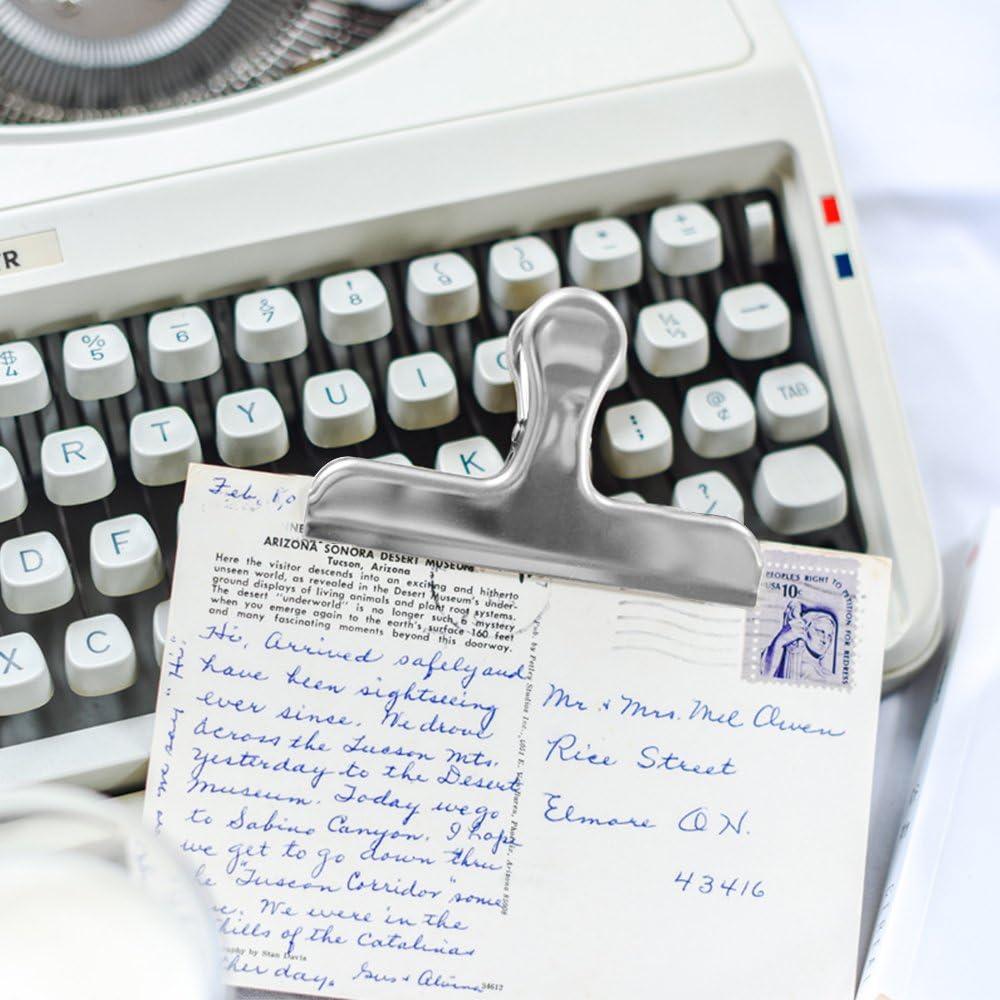 R
$ 4
% 5
_ 6
& 7
! 8
( 9
) 0
* -
+ =
¼ ½
R T Y U I
TAB
@ ¢
D F K
: ;
? /
X C
Feb.
ARIZONA-SONORA DESERT MUSEUM
Tucson, Arizona
Here the visitor descends into an exciting and hitherto
unseen world, as revealed in the Desert Museum's under-
ground displays of living animals and plant root systems.
The desert "underworld" is no longer such a mystery
when you emerge again to the earth's surface 160 feet
and many fascinating moments beyond this doorway.
Hi, Arrived safely and
have been sightseeing
ever since. We drove
across the Tucson Mts.
yesterday to the Desert
Museum. Today we go
to Sabino Canyon. I hope
we get to go down thru
"Tuscon Corridor" some
We were in the
hills of the Catalinas
day. Gus + Alvina
by Stan Davis
S4612
say "Hi."
Pub. by Petley Studios Inc., 4051 E. Phoenix, Arizona
PEOPLES RIGHT TO PETITION FOR REDRESS
USA 10c
Mr. + Mrs. Mel Owen
Rice Street
Elmore OH.
43416